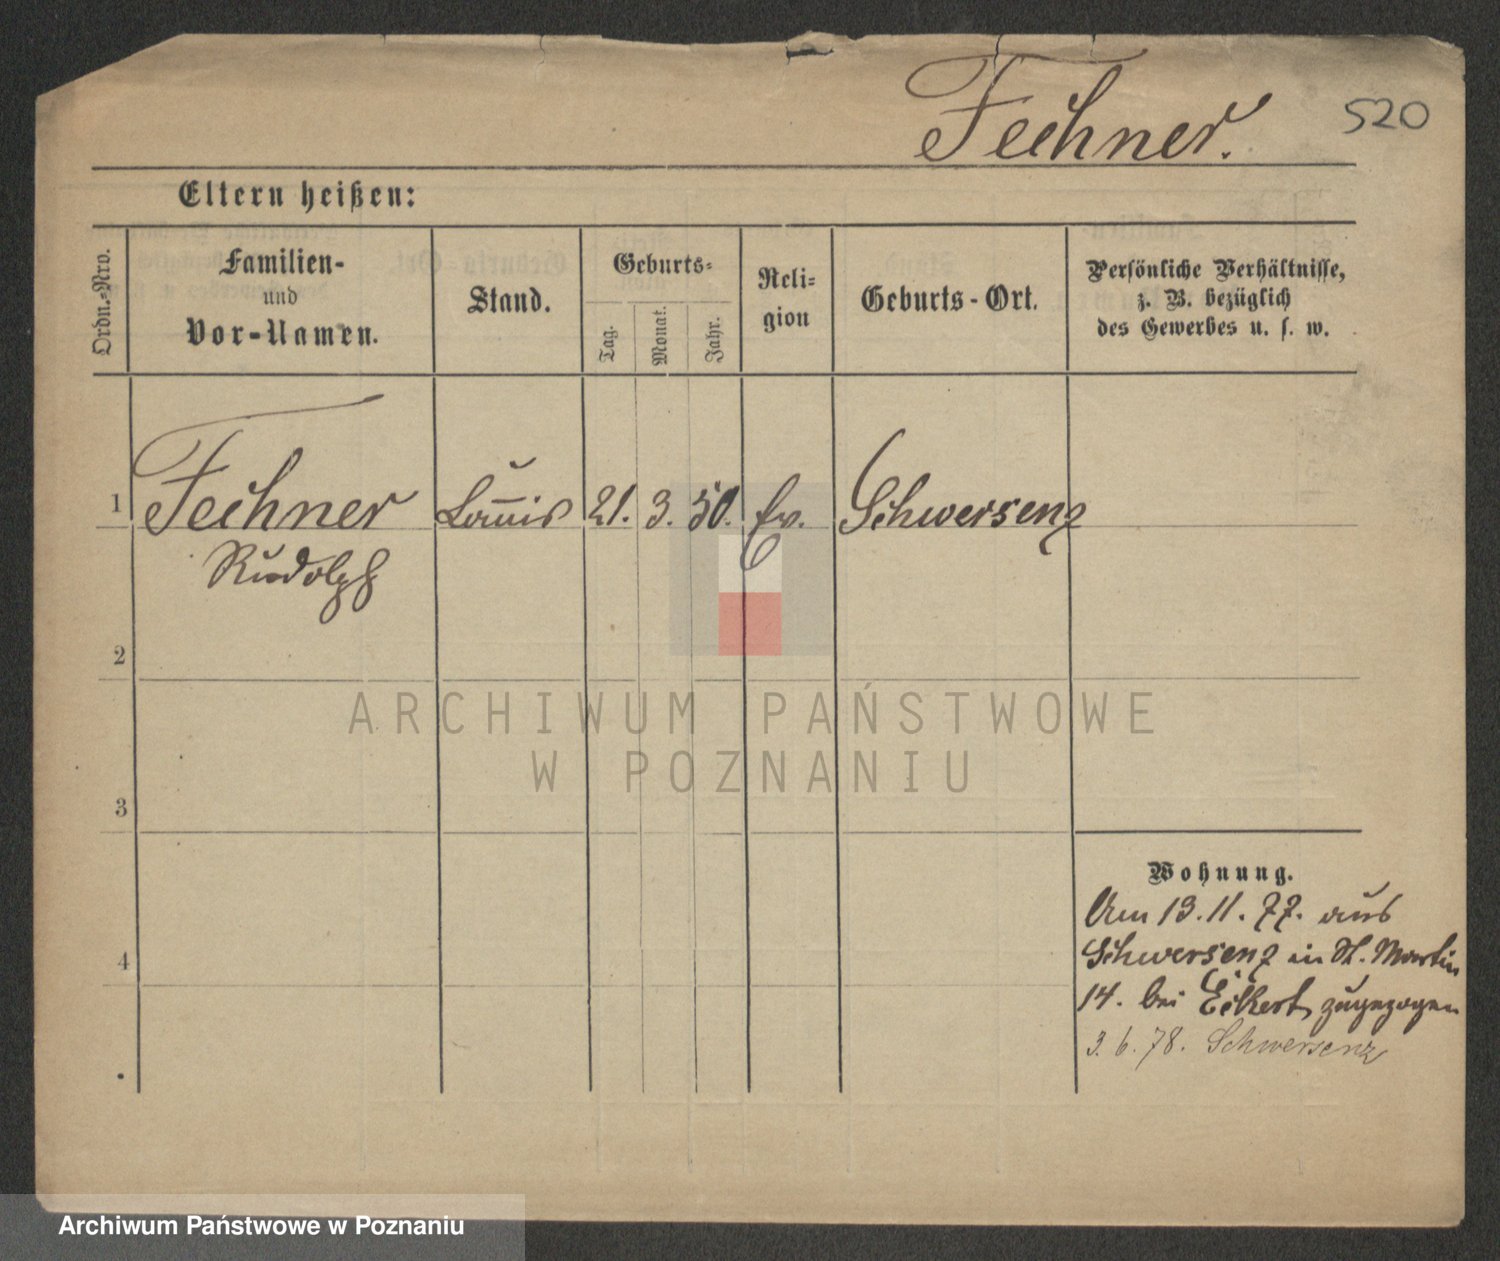 Fechner.
520
Eltern heißen:
Ordn.-Nro.
Familien-
und
Vor-Namen.
Stand.
Geburts-
Tag.
Monat.
Jahr.
Reli-
gion
Geburts-Ort.
Persönliche Verhältnisse,
z. B. bezüglich
des Gewerbes u. s. w.
1 Fechner 21. 3. 50. Ev. Schwersenz
Rudolph
2
3
4
Wohnung.
Am 13.11.77. aus
Schwersenz in St. Martin
14. bei Eckert zugezogen
3.6.78. Schwersenz
ARCHIWUM PAŃSTWOWE
W POZNANIU
Archiwum Państwowe w Poznaniu